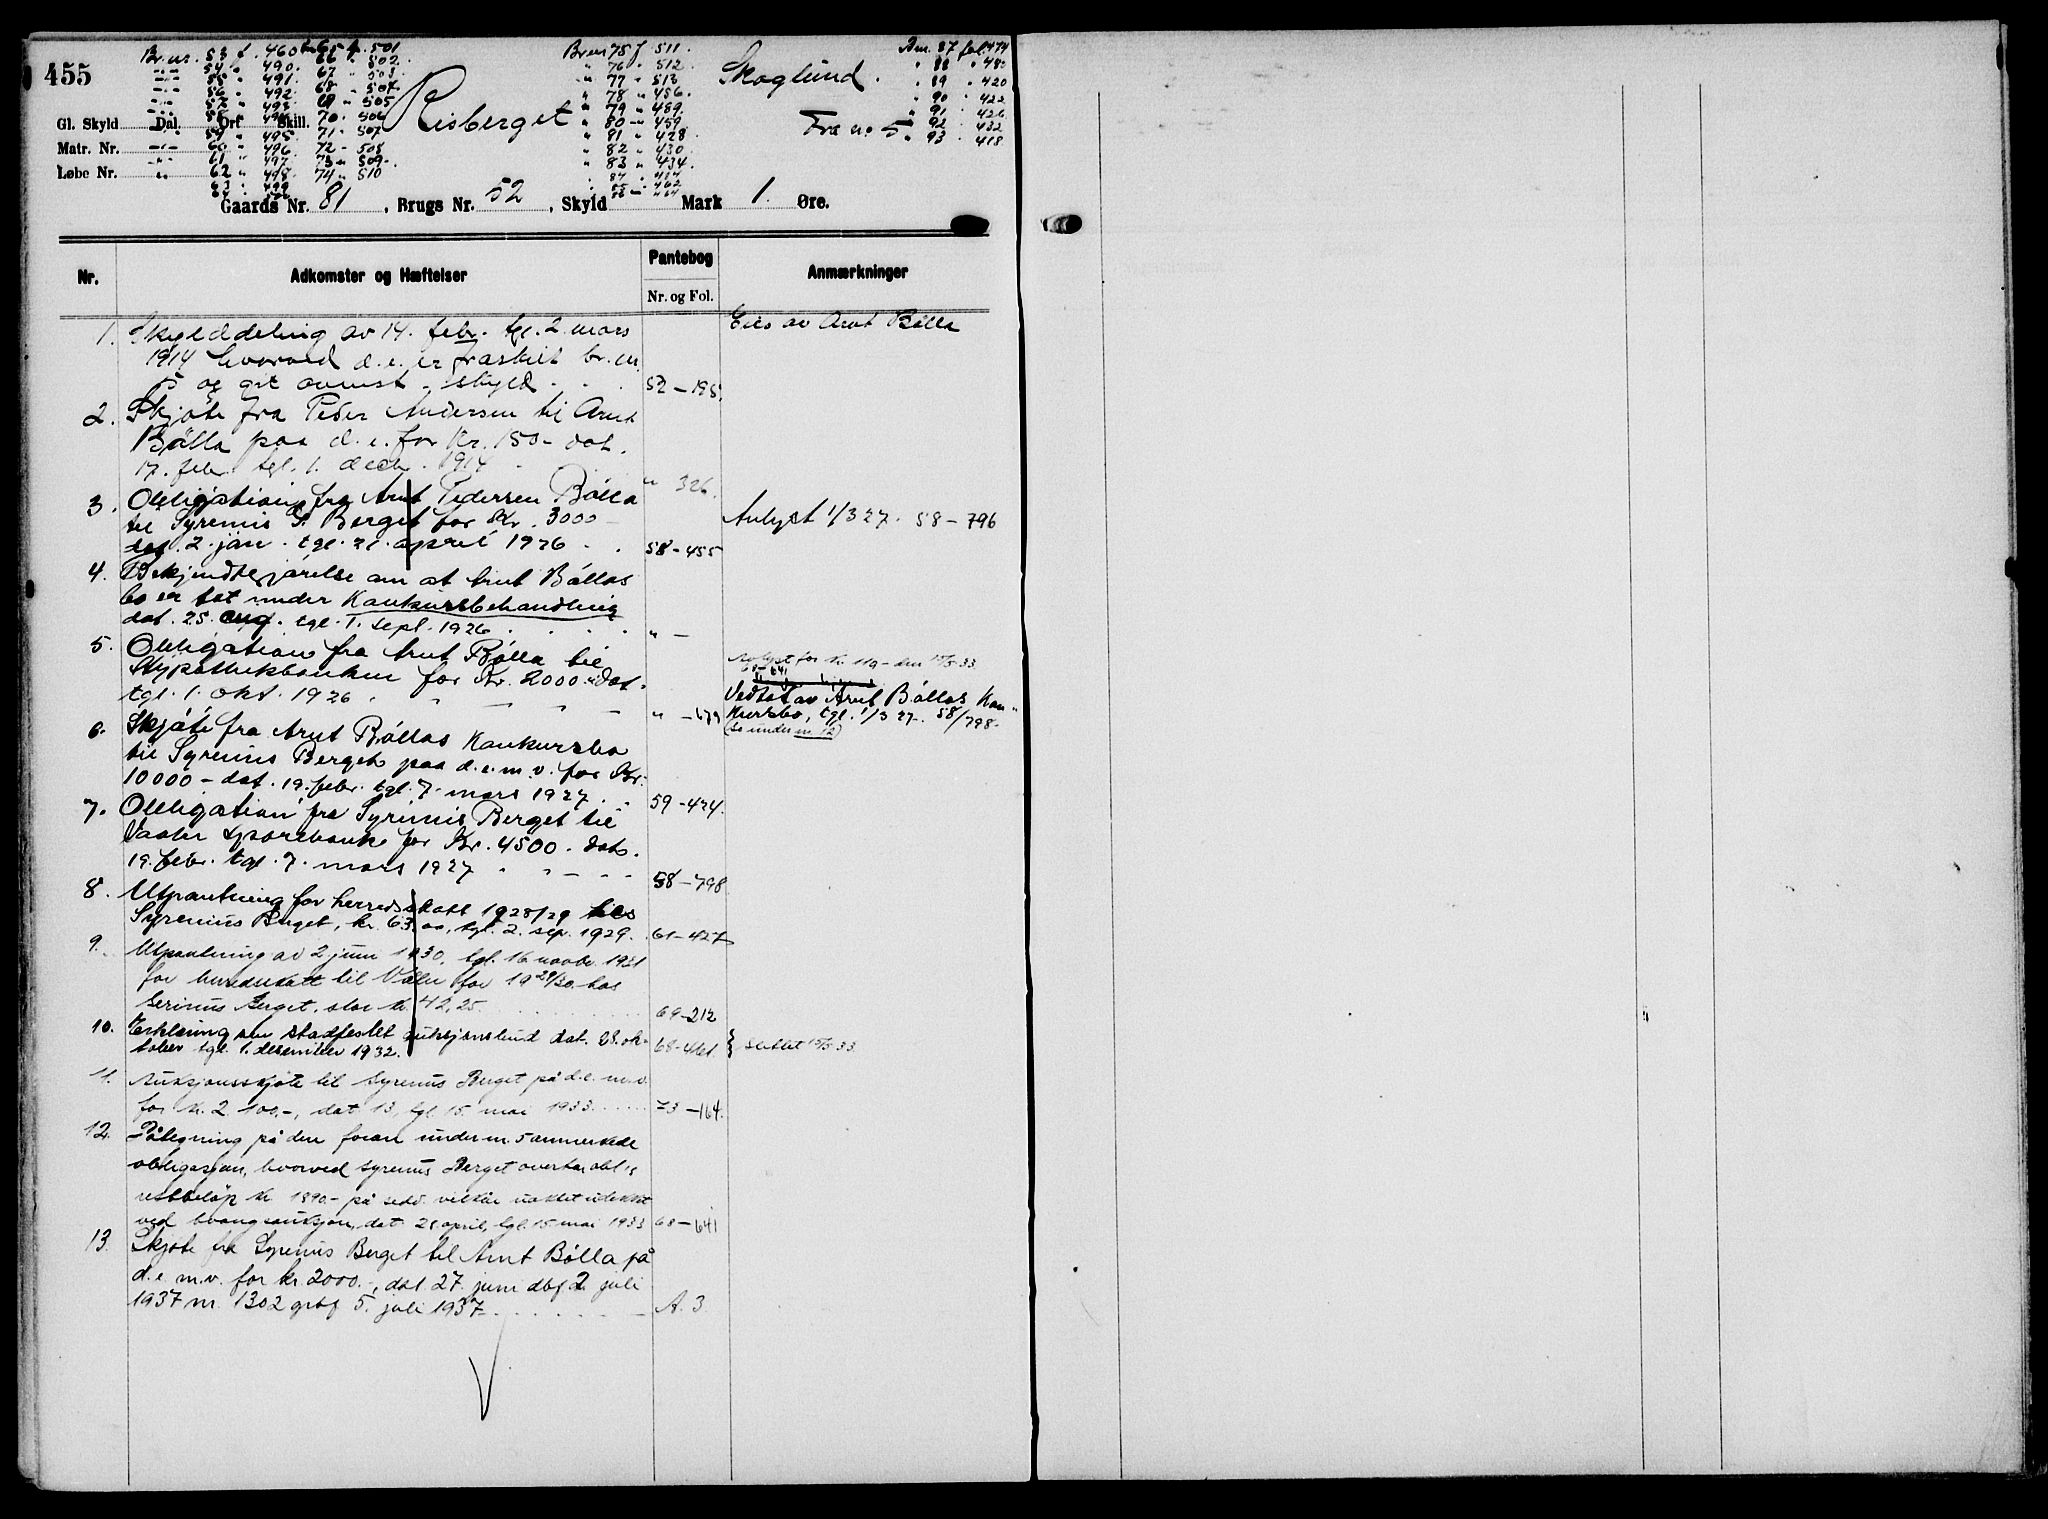 455
Br. nr. 53 f. 460
54 " 490
55 " 491
56 " 492
57 " 493
59 " 495
60 " 496
61 " 497
62 " 498
63 " 499
66 " 502
67 " 503
68 " 504
69 " 505
70 " 506
71 " 507
72 " 508
73 " 509
74 " 510
Risberget
Br. nr 75 f. 511
" 76 " 512
" 77 " 513
" 78 " 456
" 79 " 489
" 80 " 459
" 81 " 428
" 82 " 430
" 83 " 434
Skoglund.
Fra nr. 5
Bnr. 87 fol. 474
" 89 " 420
" 90 " 422
" 91 " 426
" 92 " 432
" 93 " 418
Gl. Skyld Dal. Ort Skill.
Matr. Nr.
Løbe Nr.
Gaards Nr. 81, Brugs Nr. 52, Skyld Mark 1. Øre.
Nr. Adkomster og Hæftelser Pantebog Anmærkninger
Nr. og Fol.
1. Skylddeling av 14. febr. tgl. 2. mars Eies av Arnt Bølla
1914 hvorved d. e. er fraskilt br. nr.
5 og git ovennst. skyld 52 – 195.
2. Skjøte fra Peder Andersen til Arnt
Bølla paa d. e. for Kr. 150– dat.
17. febr. tgl. 1. decb. 1914 " 326.
3. Obligation fra Arnt Pedersen Bølla
til Syrenius P. Berget for Kr. 3000– Avlyst 1/3 27. 58 – 796
dat. 2. jan. tgl. 21. april 1926 58 – 455
4. Bekjendtgjørelse om at Arnt Bøllas
bo er tat under Konkursbehandling
dat. 25. aug. tgl. 1. sept. 1926 " –
5. Obligation fra Arnt Bølla til
Hypothekbanken for Kr. 2000– dat. Avlyst for kr. 110– den 15/5 33.
68–641
tgl. 1. okt. 1926 " – 679
Vedtat av Arnt Bøllas Kon-
kursbo, tgl. 1/3 27. 58/798.
(Se under nr. 12)
6. Skjøte fra Arnt Bøllas Konkursbo
til Syrenius Berget paa d. e. m. v. for Kr.
10000– dat. 19. febr. tgl. 7. mars 1927 59 – 424.
7. Obligation fra Syrenius Berget til
Vaaler Sparebank for Kr. 4500. dat.
19. febr. tgl. 7. mars 1927 58 – 798
8. Utpantning for herredsskatt 1928/29 hos
Syrenius Berget, kr. 63.00, tgl. 2. sep. 1929. 61 – 427
9. Utpantning av 2 juni 1930, tgl. 16 novbr. 1931
for herredsskatt til Våler for 1929/30 hos
Serinus Berget, stor kr. 42,25. 69 – 212
10. Erklæring om stadfestet auksjonsbud dat. 28. ok-
tober tgl. 1. desember 1932. 68 – 461. } Slettet 15/5 33.
11. Auksjonsskjøte til Syrenus Berget på d. e. m. v.
for kr. 2 100.–, dat 13, tgl. 15. mai 1933 73 – 164.
12. Påtegning på den foran under nr. 5 anmerkede
obligasjon, hvorved Syrenus Berget overtar obl's
restbeløp kr 1890.– på sedv. vilkår uaktet udekket
ved tvangsauksjon, dat. 21 april, tgl. 15. mai 1933 68 – 641
13. Skjøte fra Syrenus Berget til Arnt Bølla på
d. e m. v. for kr 2000.–, dat 27. juni dbf 2. juli
1937 nr. 1302 grbf 5. juli 1937 A. 3.